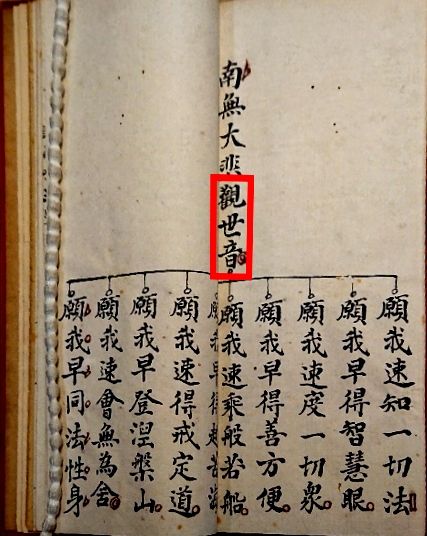 南無大悲觀世音
願我速知一切法
願我早得智慧眼
願我速度一切衆
願我早得善方便
願我速乘般若船
願我早得越苦海
願我速得戒定道
願我早登涅槃山
願我速會無為舍
願我早同法性身